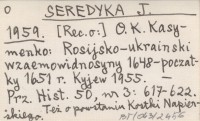 O SEREDYKA J.
1959. [Rec.o:] O.K. Kasy-
menko: Rosijsko-ukrainski
wzaemowidnosyny 1648-począt-
ky 1651 r. Kyjew 1955. —
Prz. Hist. 50, nr 3: 617-622.
Też o powstaniu Kostki Napier-
skiego.